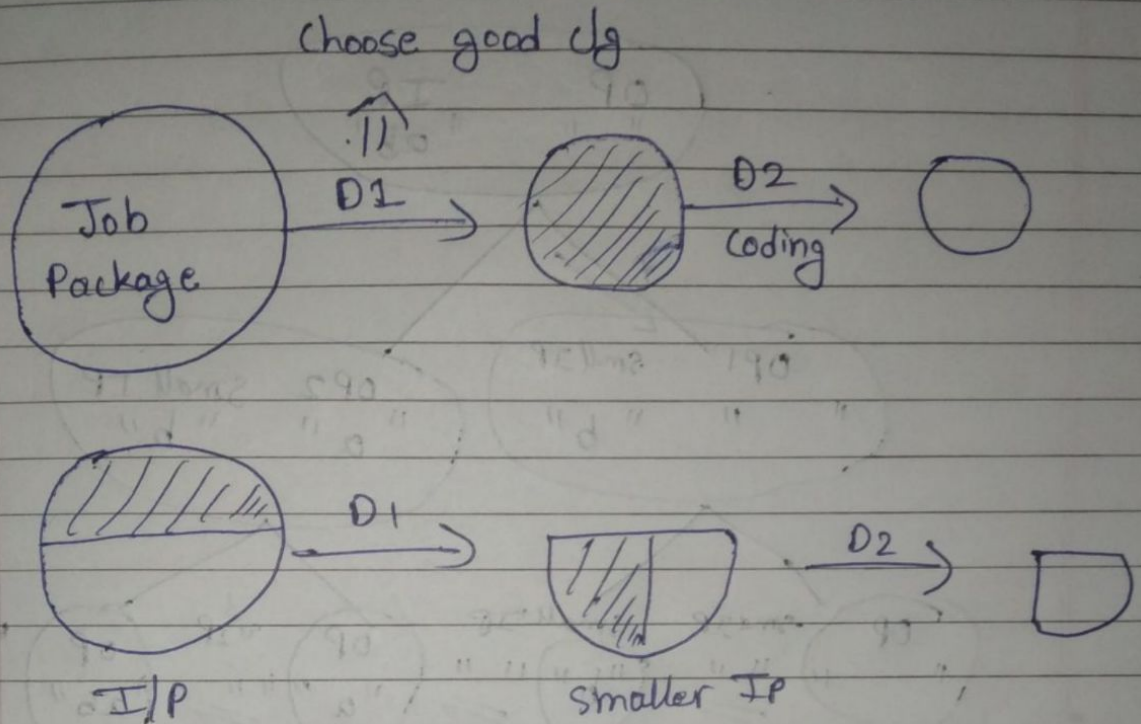 Choose good clg
D1
D2
Job
Package
Coding
D1
D2
I/P
Smaller Ip